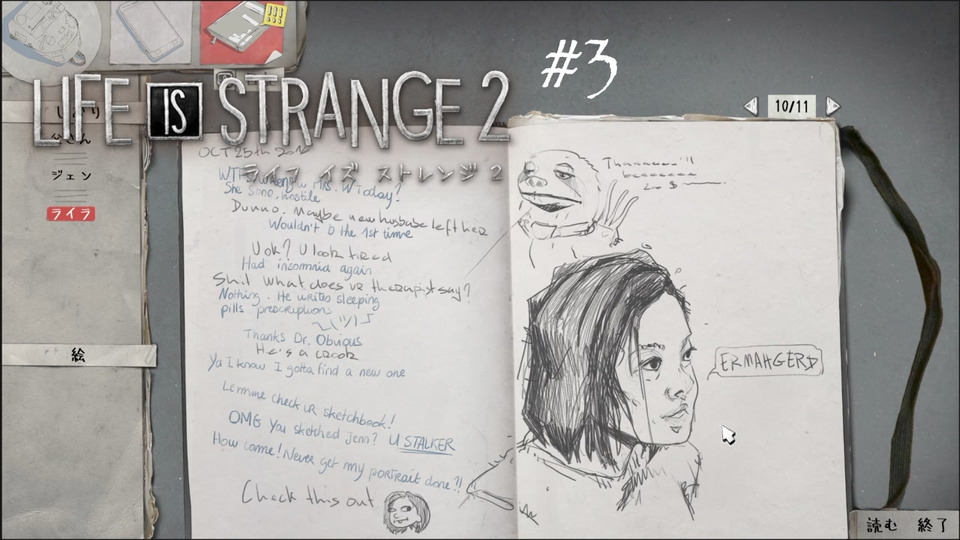 LIFE IS STRANGE 2
#3
ライフ イズ ストレンジ 2
10/11
ジェン
ライラ
絵
OCT 25th
WTF is wrong w Mrs. W Today?
She so no. hostile
Dunno. Maybe new husband left her
Wouldn't b the 1st time
U ok? U look tired
Had insomnia again
Shit what does ur therapist say?
Nothing. He writes sleeping
pills prescription
Thanks Dr. Obvious
He's a crook
Ya I know I gotta find a new one
Lemme check ur sketchbook!
OMG You sketched Jenn? U STALKER
How come! Never get my portrait done?!
Check this out
ERMAHGERD
読む 終了